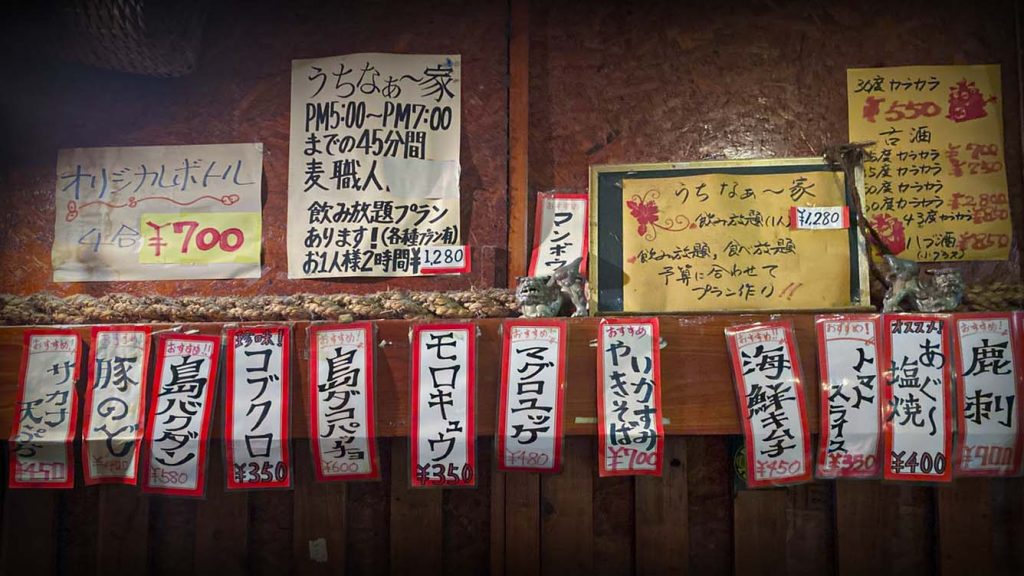 オリジナルボトル
4合 ¥700
うちなぁ〜家
PM5:00〜PM7:00
までの45分間
麦職人
飲み放題プラン
あります!(各種プラン有)
お1人様2時間¥1,280
マンボウ
うちなぁ〜家
飲み放題(1人) ¥1,280
飲み放題,食べ放題
予算に合わせて
プラン作り!!
30度カラカラ
¥550
古酒
カラカラ ¥700
カラカラ
カラカラ ¥2,800
43度カラカラ ¥850
ハブ酒 ¥850
(1グラス)
おすすめ!!
サカナ
天ぷら
¥450
豚のど
おすすめ!!
島バクダン
¥580
珍味!
コブクロ
¥350
おすすめ!!
島ダコパッチョ
¥600
モロキュウ
¥350
おすすめ!
マグロユッケ
¥480
おすすめ
いかすみ
やきそば
¥700
おすすめ!!
海鮮キムチ
¥450
おすすめ!
トマト
スライス
¥350
オススメ!
あぐ〜
塩焼
¥400
おすすめ!
鹿刺